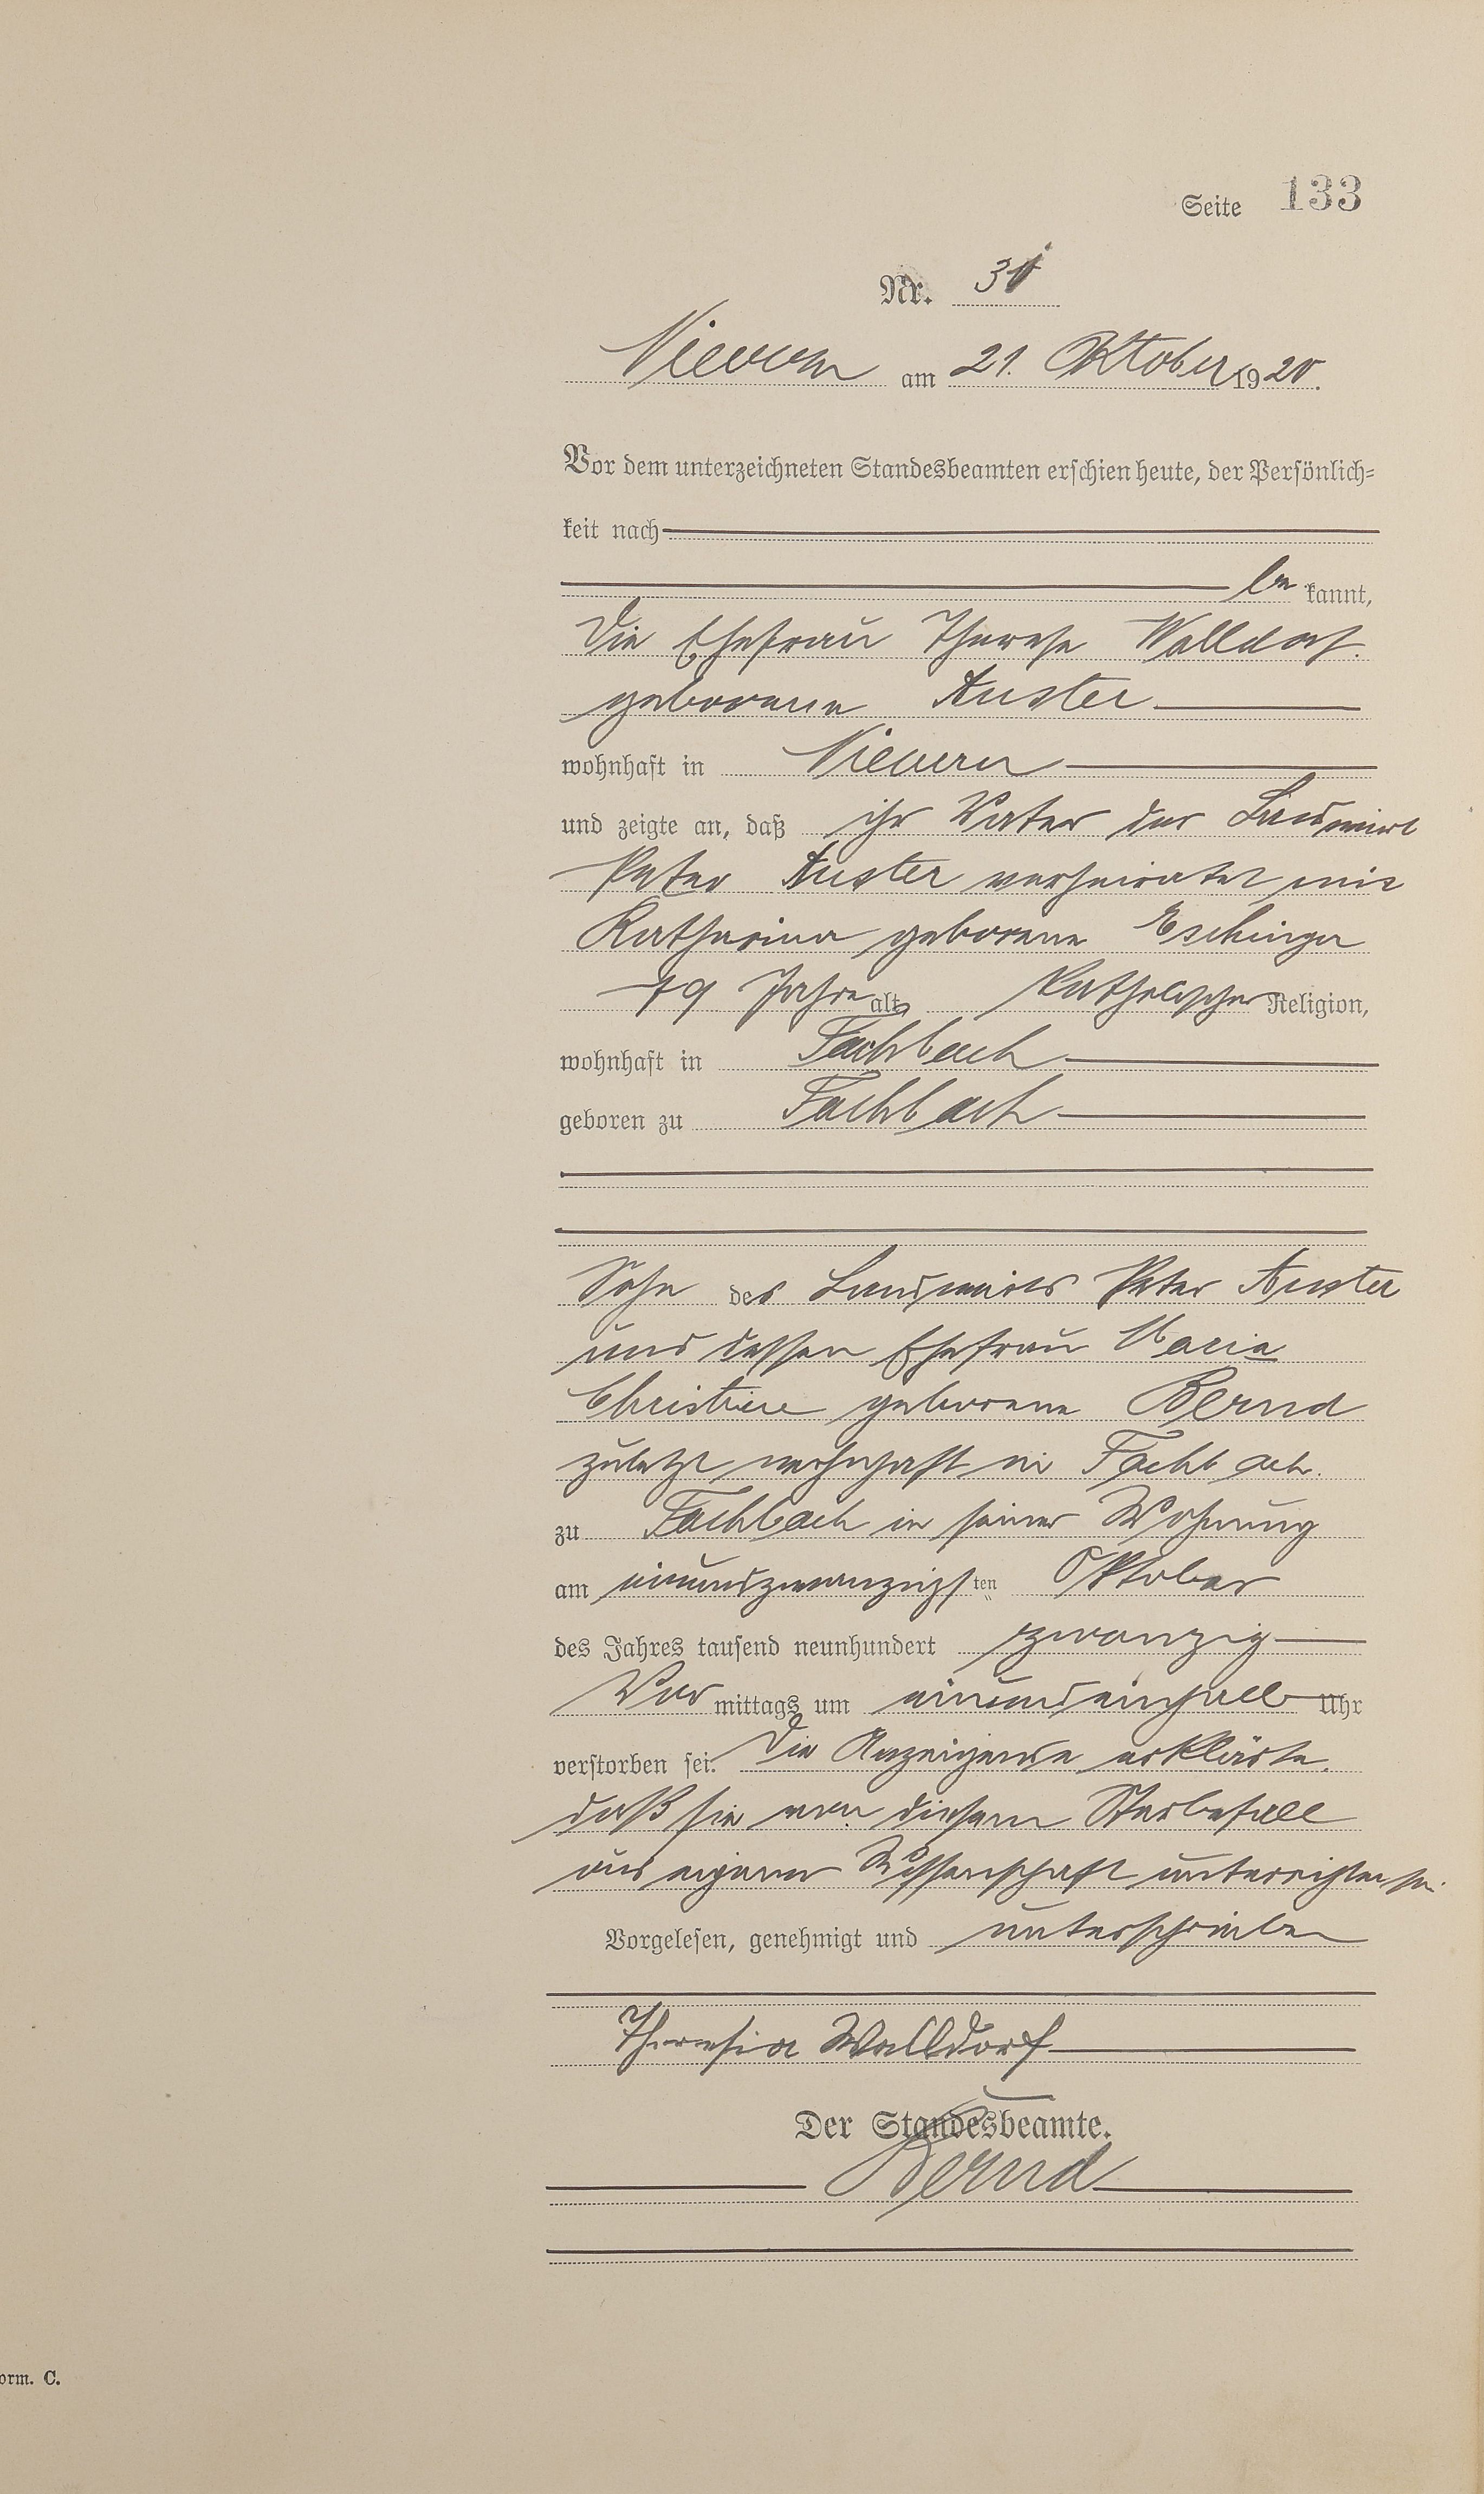 Seite 133
Nr. 31
Nievern am 21. Oktober 1920.
Vor dem unterzeichneten Standesbeamten erschien heute, der Persönlich-
keit nach
be kannt,
die Ehefrau Therese Walldorf
geborene Auster
wohnhaft in Nievern
und zeigte an, daß ihr Vater der Landwirt
Peter Auster verheiratet mit
Katharina geborene Eschinger
79 Jahre alt, katholischer Religion,
wohnhaft in Fachbach
geboren zu Fachbach
Sohn des Landwirts Peter Auster
und dessen Ehefrau Maria
Christine geborene Bernd
zuletzt wohnhaft in Fachbach.
zu Fachbach in seiner Wohnung
am einundzwanzigsten Oktober
des Jahres tausend neunhundert zwanzig
Vor mittags um einundeinhalb Uhr
verstorben sei. Die Anzeigende erklärte,
daß sie von diesem Sterbefall
aus eigener Wissenschaft unterrichtet sei.
Vorgelesen, genehmigt und unterschrieben
Theresia Walldorf
Der Standesbeamte.
Bernd
orm. C.